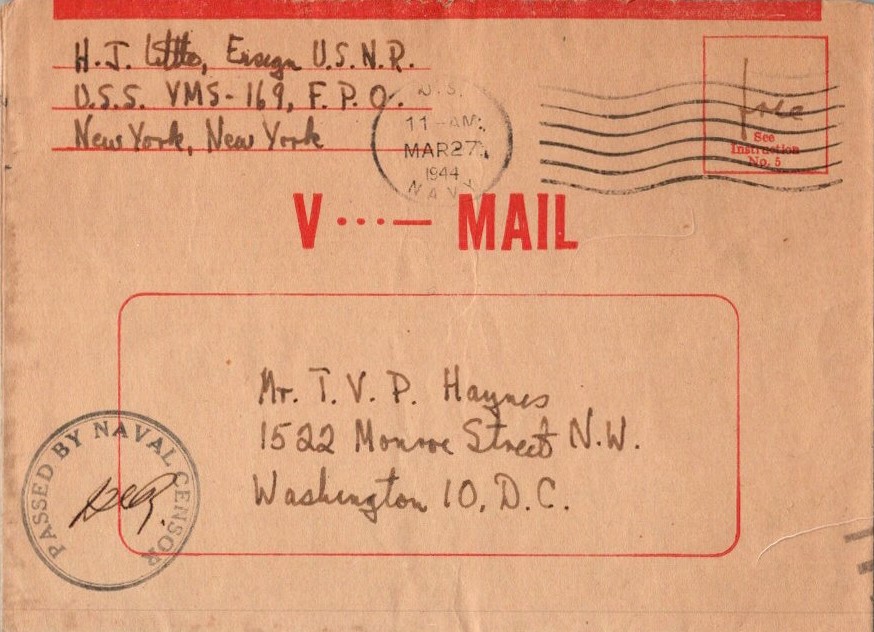 H.J. Little, Ensign U.S.N.R.
U.S.S. YMS-169, F.P.O.
New York, New York
U.S.
11-AM
MAR 27
1944
NAVY
Free
See
Instruction
No. 5
V ···— MAIL
Mr. T. V. P. Haynes
1522 Monroe Street N.W.
Washington 10, D.C.
PASSED BY NAVAL CENSOR